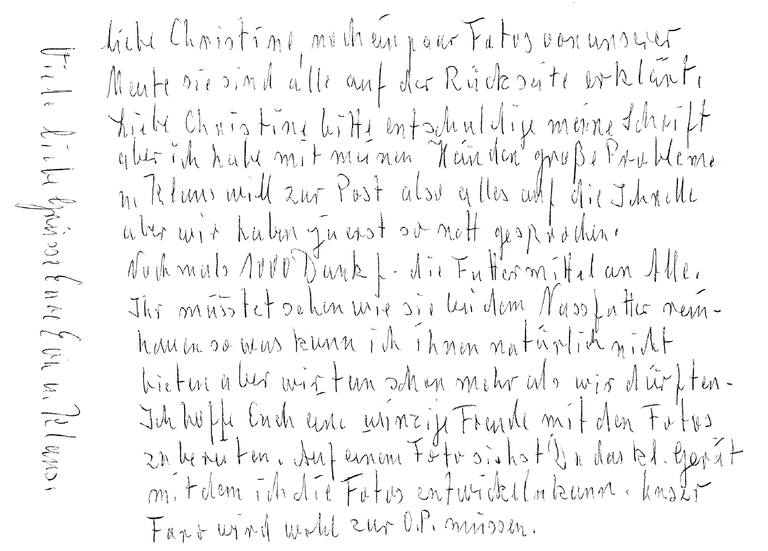 liebe Christine, noch ein paar Fotos von unserer
Meute sie sind alle auf der Rückseite erklärt.
Liebe Christine bitte entschuldige meine Schrift
aber ich habe mit meinen Händen große Probleme
u. Klaus will zur Post also alles auf die Schnelle
aber wir haben ja erst so nett gesprochen.
Nochmals 1000 Dank f. die Futtermittel an Alle.
Ihr müsstet sehen wie sie bei dem Nassfutter rein-
hauen so was kann ich ihnen natürlich nicht
bieten aber wir tun schon mehr als wir dürften.
Ich hoffe Euch eine winzige Freude mit den Fotos
zu bereiten. Auf einem Foto siehst Du das kl. Gerät
mit dem ich die Fotos entwickeln kann. Unser
wird wohl zur O.P. müssen.
Viele liebe Grüsse Eure u. Klaus.